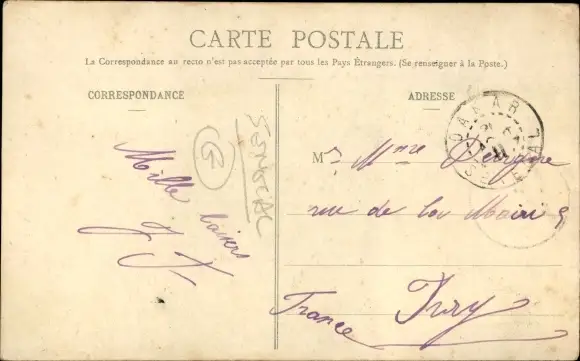 CARTE POSTALE
La Correspondance au recto n'est pas acceptée par tous les Pays Étrangers. (Se renseigner à la Poste.)
CORRESPONDANCE
ADRESSE
DAKAR
SÉNÉGAL
SENEGAL
Mille baisers
J
M Mme
rue de la Mairie
Ivry
France